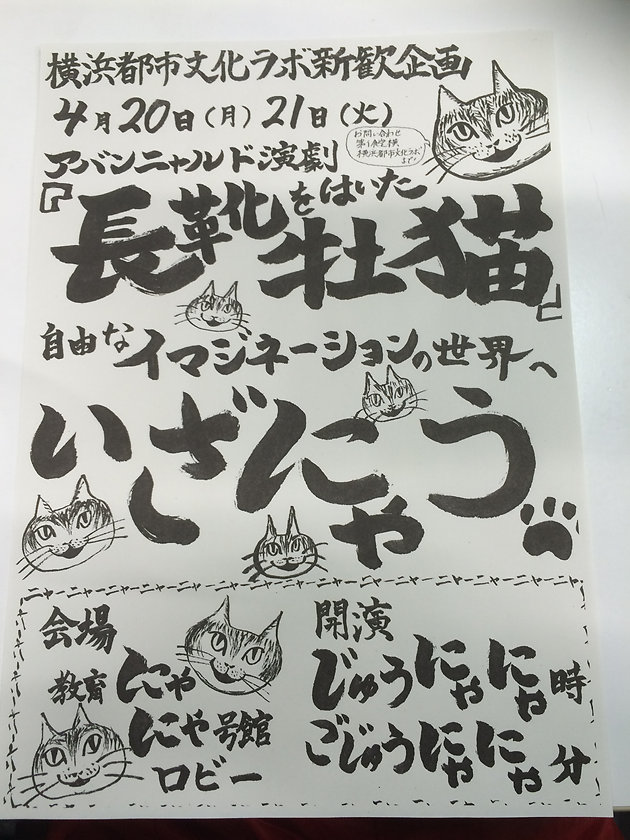 横浜都市文化ラボ新歓企画
4月20日(月)21日(火)
お問い合わせ
第1食堂横
横浜都市文化ラボ
まで!
アバンニャルド演劇
『長靴をはいた牡猫』
自由なイマジネーションの世界へ
いざにゃう
ニャーニャーニャーニャーニャーニャーニャーニャーニャー
会場
教育にゃ
にゃ号館
ロビー
開演
じゅうにゃにゃ時
ごじゅうにゃにゃ分